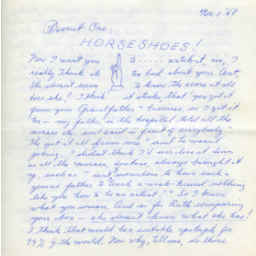 Nov. 1 '68
Dearest One,
HORSESHOES!
Now I want you to ..... watch it, sis, I
really think so too bad about your Aunt,
She doesn't seem to know the score at all
does she! I think it stinks, that "you got it
from your Grandfather" business, so I got it
too — my father in the hospital told all the
nurses etc. and said in front of everybody —
"he got it all from me" and he wasn't
joking. I didn't think I'd ever live it down
as all the nurses, doctors, always brought it
up, such as "isn't marvelous to have such a
genius father to teach a weak-kneed nothing
like you how to be an artist." So I know
what you mean. And as for Ruth comparing
your box — she doesn't know what she has!
I think that would be a suitable epitaph for
99% of the world. Now why, tell me, do these